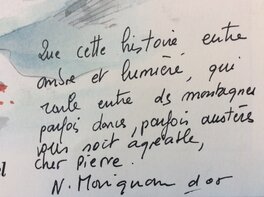 Que cette histoire entre
ombre et lumière, qui
roule entre des montagnes
parfois douces, parfois austères
vous soit agréable,
cher Pierre.
N. Morignan d'or